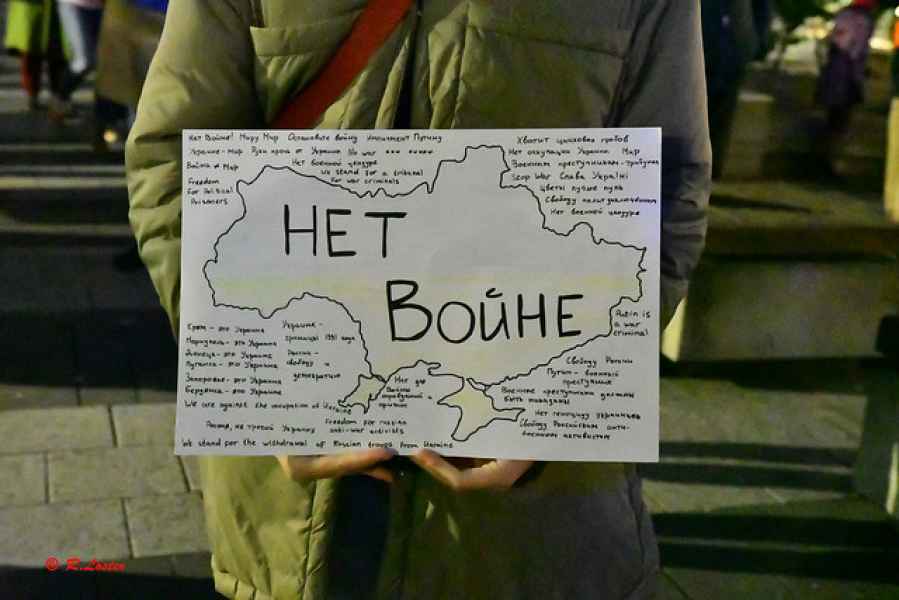 Нет Войне! Миру Мир Остановите войну Импичмент Путину
Украине-Мир Руки прочь от Украины No war
Война ≠ Мир
Нет военной цензуре
We stand for a tribunal
for war criminals
Freedom
For Political
Prisoners
Хватит цинковых гробов
Нет оккупации Украины Мир
Военным преступникам-трибунал
Stop War Слава Україні
Цветы лучше пуль
Свободу политзаключённым
Нет военной цензуре
НЕТ
ВОЙНЕ
Putin is
a war
criminal
Крым-это Украина
Мариуполь-это Украина
Донецк-это Украина
Луганск-это Украина
Запорожье-это Украина
Бердянск-это Украина
Украине-
границы 1991 года
России-
свободу и
демократию
We are against the occupation of Ukraine
Россия, не трогай Украину
Freedom for russian
anti-war activists
We stand for the withdrawal of Russian troops from Ukraine
Нет
войны
Свободу России
Путин-военный
преступник
Военные преступники должны
быть наказаны
Нет геноциду украинцев
Свободу Российским анти-
военным активистам
© R.Loster